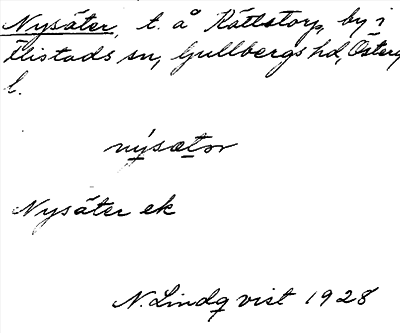 Nysäter, t. å Rättstorp, by i
Flistads sn, Gullbergs hd, Österg
l.
nysætor
Nysäter ek
N. Lindqvist 1928